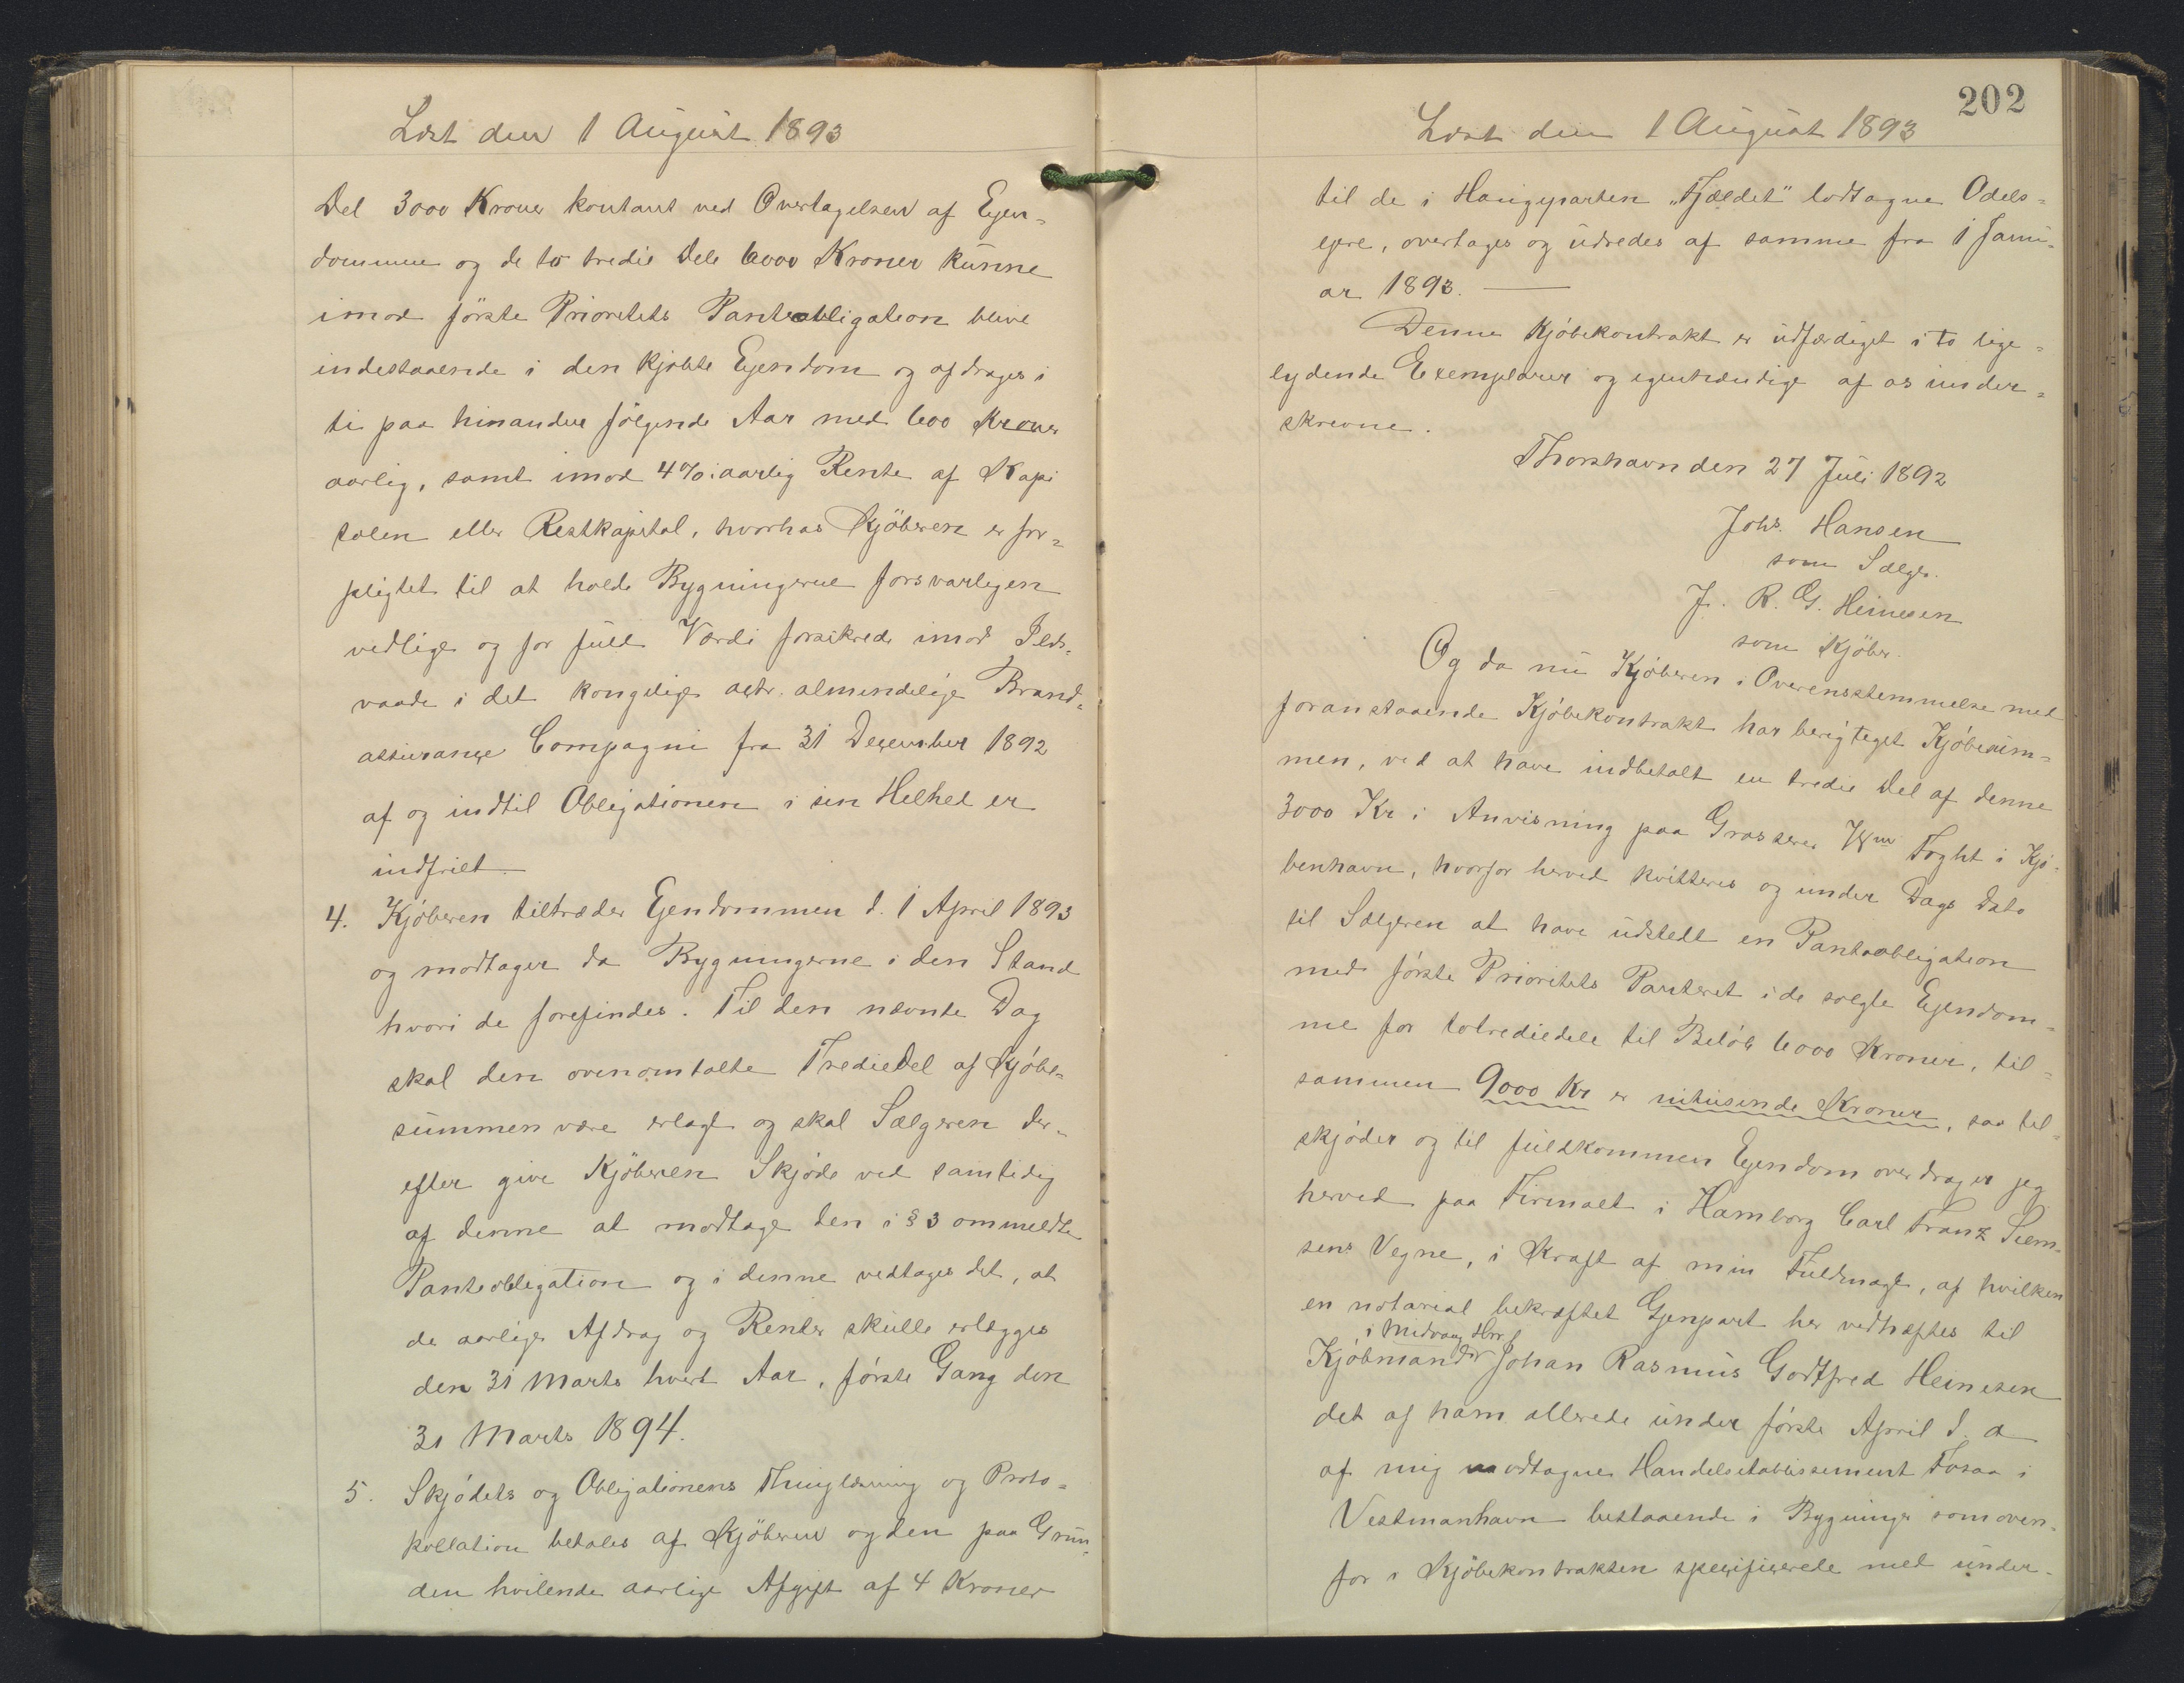 Læst den 1 August 1893
Del 3000 Kroner kontant ved Overtagelsen af Ejen-
dommene og de to tredie Dele 6000 Kroner kunne
imod första Prioritets Panteobligation blive
indestaaende i den kjöbte Ejendom og afdrages i
ti paa hinanden fölgende Aar med 600 Kroner
aarlig, samt imod 4% aarlig Rente af Kapi
talen eller Restkapital, hvorhos Kjöberen er for-
pligtet til at holde Bygningerne forsvarligen
vedlige og for fuld Værdi forsikrede imod Ilds-
vaade i det kongelige octr. almindelige Brand-
assurance Compagni fra 31 December 1892
af og indtil Obligationen i sin Helhed er
indfriet
4. Kjöberen tiltræder Ejendommen d. 1 April 1893
og modtager da Bygningerne i den Stand
hvori de forefindes. Til den nævnte Dag
skal den ovenomtalte TredieDel af Kjöbe-
summen være erlagt og skal Sælgeren der-
efter give Kjöberen Skjöde ved samtidig
af denne at modtage den i § 3 ommeldte
Panteobligation og i denne vedtages det, at
de aarlige Afdrag og Renter skulle erlægges
den 31 Marts hvert Aar, förste Gang den
31 Marts 1894.
5. Skjödets og Obligationens Thinglæsning og Proto-
kollation betales af Kjöberen og den paa Grun-
den hvilende aarlige Afgift af 4 Kroner
202
Læst den 1 August 1893
til de i Haugeparten "Fjældet" lodtagne Odels-
ejere, overtages og udredes af samme fra 1 Janu-
ar 1893.
Denne Kjöbekontrakt er udfærdiget i to lige-
lydende Exemplarer og egenhændige af os under-
skrevne.
Thorshavn den 27 Juli 1892
Johs. Hansen
som Sælger.
J. R. G. Heinesen
som Kjöber.
Og da nu Kjöberen i Overensstemmelse med
foranstaaende Kjöbekontrakt har berigtiget Kjöbesum-
men, ved at have indbetalt en tredie Del af denne
3000 Kr i Anvisning paa Grosserer Wm Foght i Kjö-
benhavn, hvorfor herved kvitteres og under Dags Dato
til Sælgeren at have udstedt en Panteobligation
med förste Prioritets Panteret i de solgte Ejendom-
me for totrediedele til Belöb 6000 Kroner, til-
sammen 9000 Kr er nitusende Kroner, saa til-
skjöder og til fuldkommen Ejendom overdrager jeg
herved paa Firmaet i Hamborg Carl Franz Siem-
sens Vegne, i Kraft af min Fuldmagt, af hvilken
en notarial bekræftet Gjenpart her vedhæftes til
i Midvaag Hrr
Kjöbmand Johan Rasmus Godtfred Heinesen
det af ham allerede under förste April d. a
af mig modtagne Handelsetablissement Fosaa i
Vestmanhavn bestaaende i Bygninger som oven-
for i Kjöbekontrakten specificerede med under-